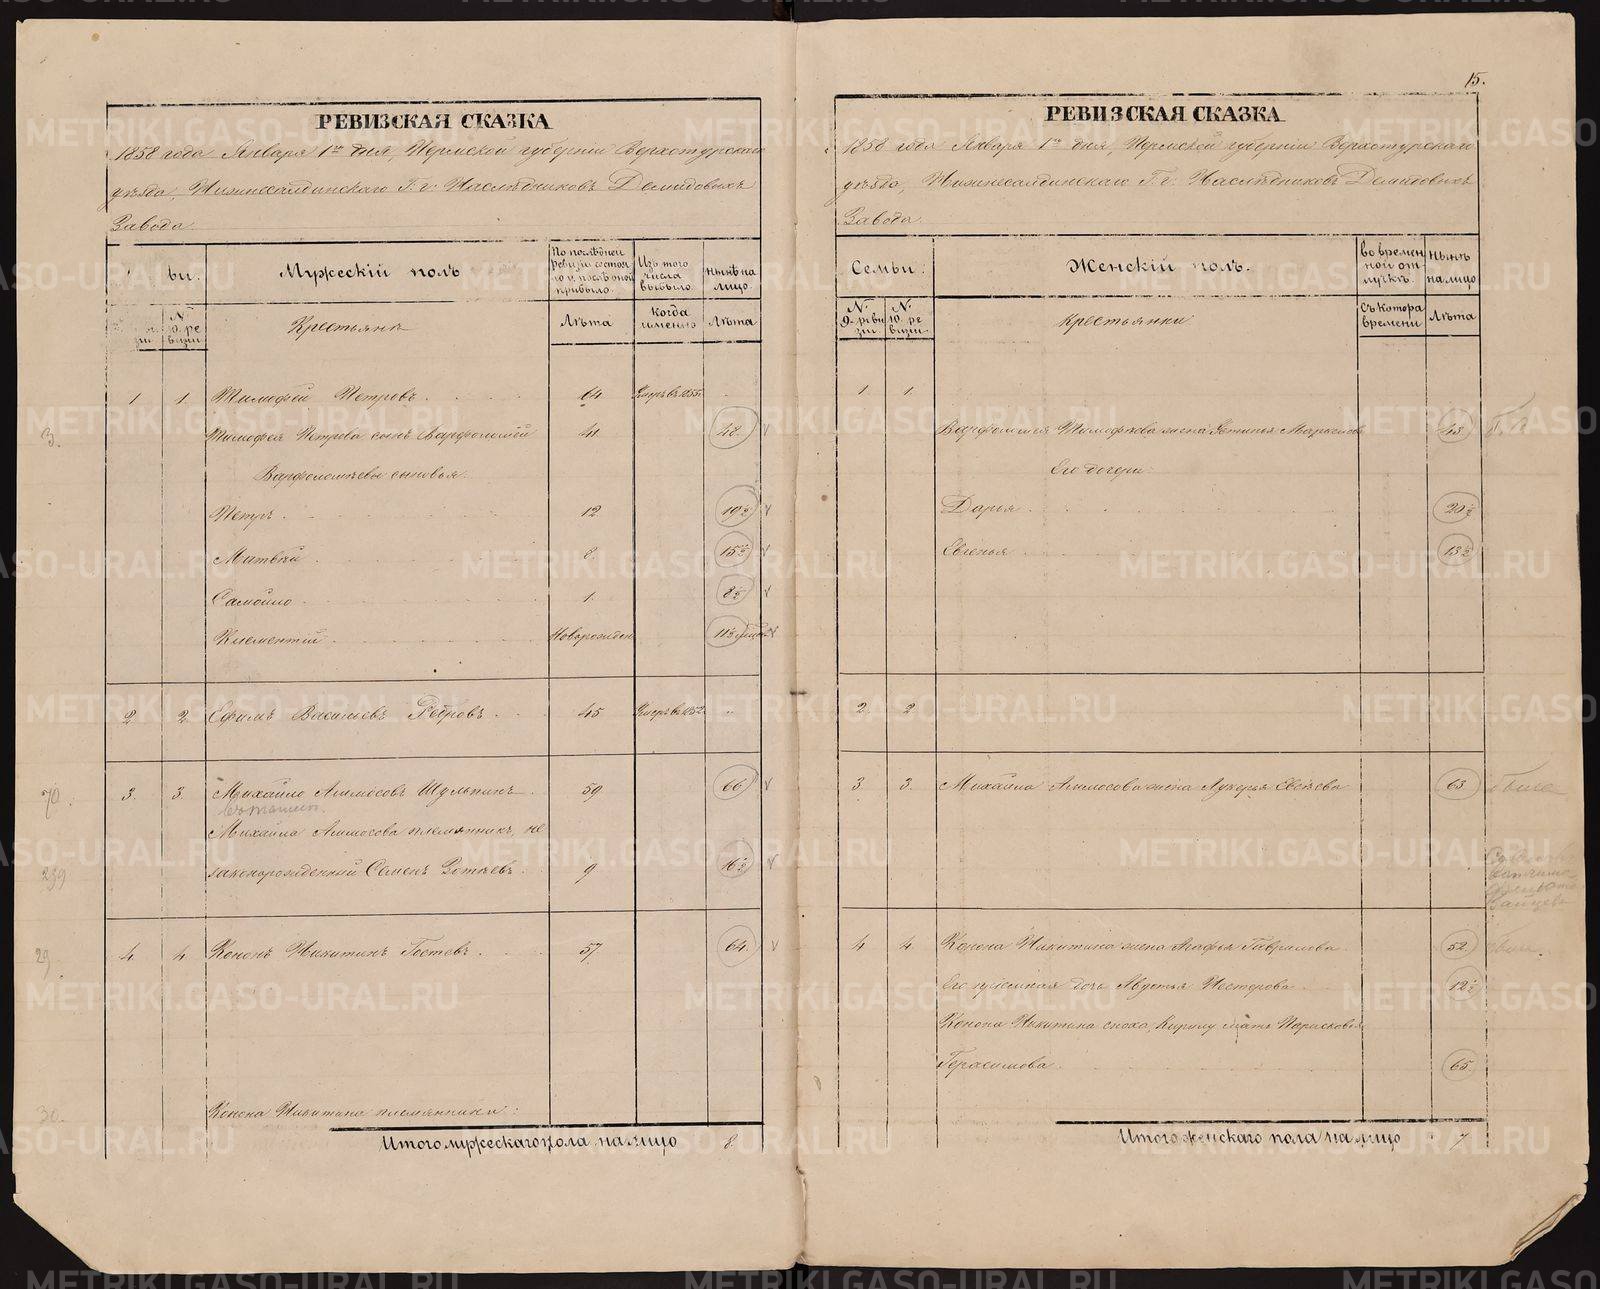 15.
РЕВИЗСКАЯ СКАЗКА
1858 года Января 1го дня, Пермской губерніи Верхотурскаго
уѣзда, Нижнесалдинскаго Г. г. Наслѣдниковъ Демидовыхъ
Завода.
ьи. Мужескій полъ По послѣдней ревизіи состояло и послѣ оной прибыло. Изъ того числа выбыло нынѣ на лицо.
№ 10. ревизіи Крестьяне Лѣта Когда именно Лѣта
1. 1. Тимофѣй Петровъ 64. Умеръ въ 1855.
3. Тимофея Петрова сынъ Варфоломѣй 41. 48.
Варфоломѣевы сыновья:
Петръ 12 19½
Матвѣй 8. 15½
Самойло 1. 8½
Климентій Новорожден 11½
2 2 Ефимъ Васильевъ 45 Умеръ въ 1852.
70. 3. 3. Михайло Амосовъ Шульпинъ 59 66
Михайла Амосова племянникъ, не
239 законорожденный Семенъ 9 16½
29 4. 4. Кононъ Никитинъ Гостевъ 57 64.
30. Конона Никитина племянники:
Итого мужескаго пола на лицо 8.
РЕВИЗСКАЯ СКАЗКА
1858 года Января 1го дня, Пермской губерніи Верхотурскаго
уѣзда, Нижнесалдинскаго Г. г. Наслѣдниковъ Демидовыхъ
Завода.
Семьи. Женскій полъ. во временной отлучкѣ. Нынѣ на лицо
№ 9. ревизіи № 10. ревизіи Крестьянки Съ котора времени Лѣта
1 1.
Варфоломея Тимофѣева жена Устинья 43
Его дочери:
Дарья 20½
Евгенья 13½
2 2
3 3. Михайла Амосова жена Лукерья 63
4 4. Конона Никитина жена Агафья Гаврилова 52
Его пріемная дочь Авдотья Нестерова 12½
Конона Никитина сноха, Кирилу мать Парасковья
Герасимова 65
Итого женскаго пола на лицо 7
METRIKI.GASO-URAL.RU